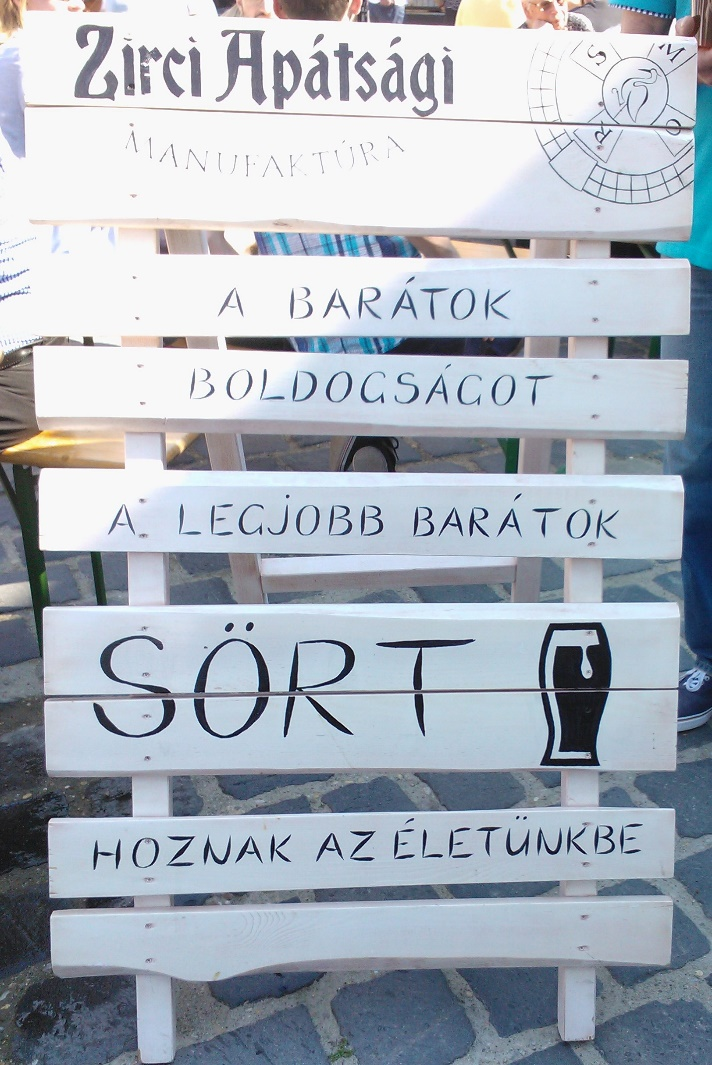 Zirci Apátsági
MANUFAKTÚRA
M O R S
A BARÁTOK
BOLDOGSÁGOT
A LEGJOBB BARÁTOK
SÖRT
HOZNAK AZ ÉLETÜNKBE